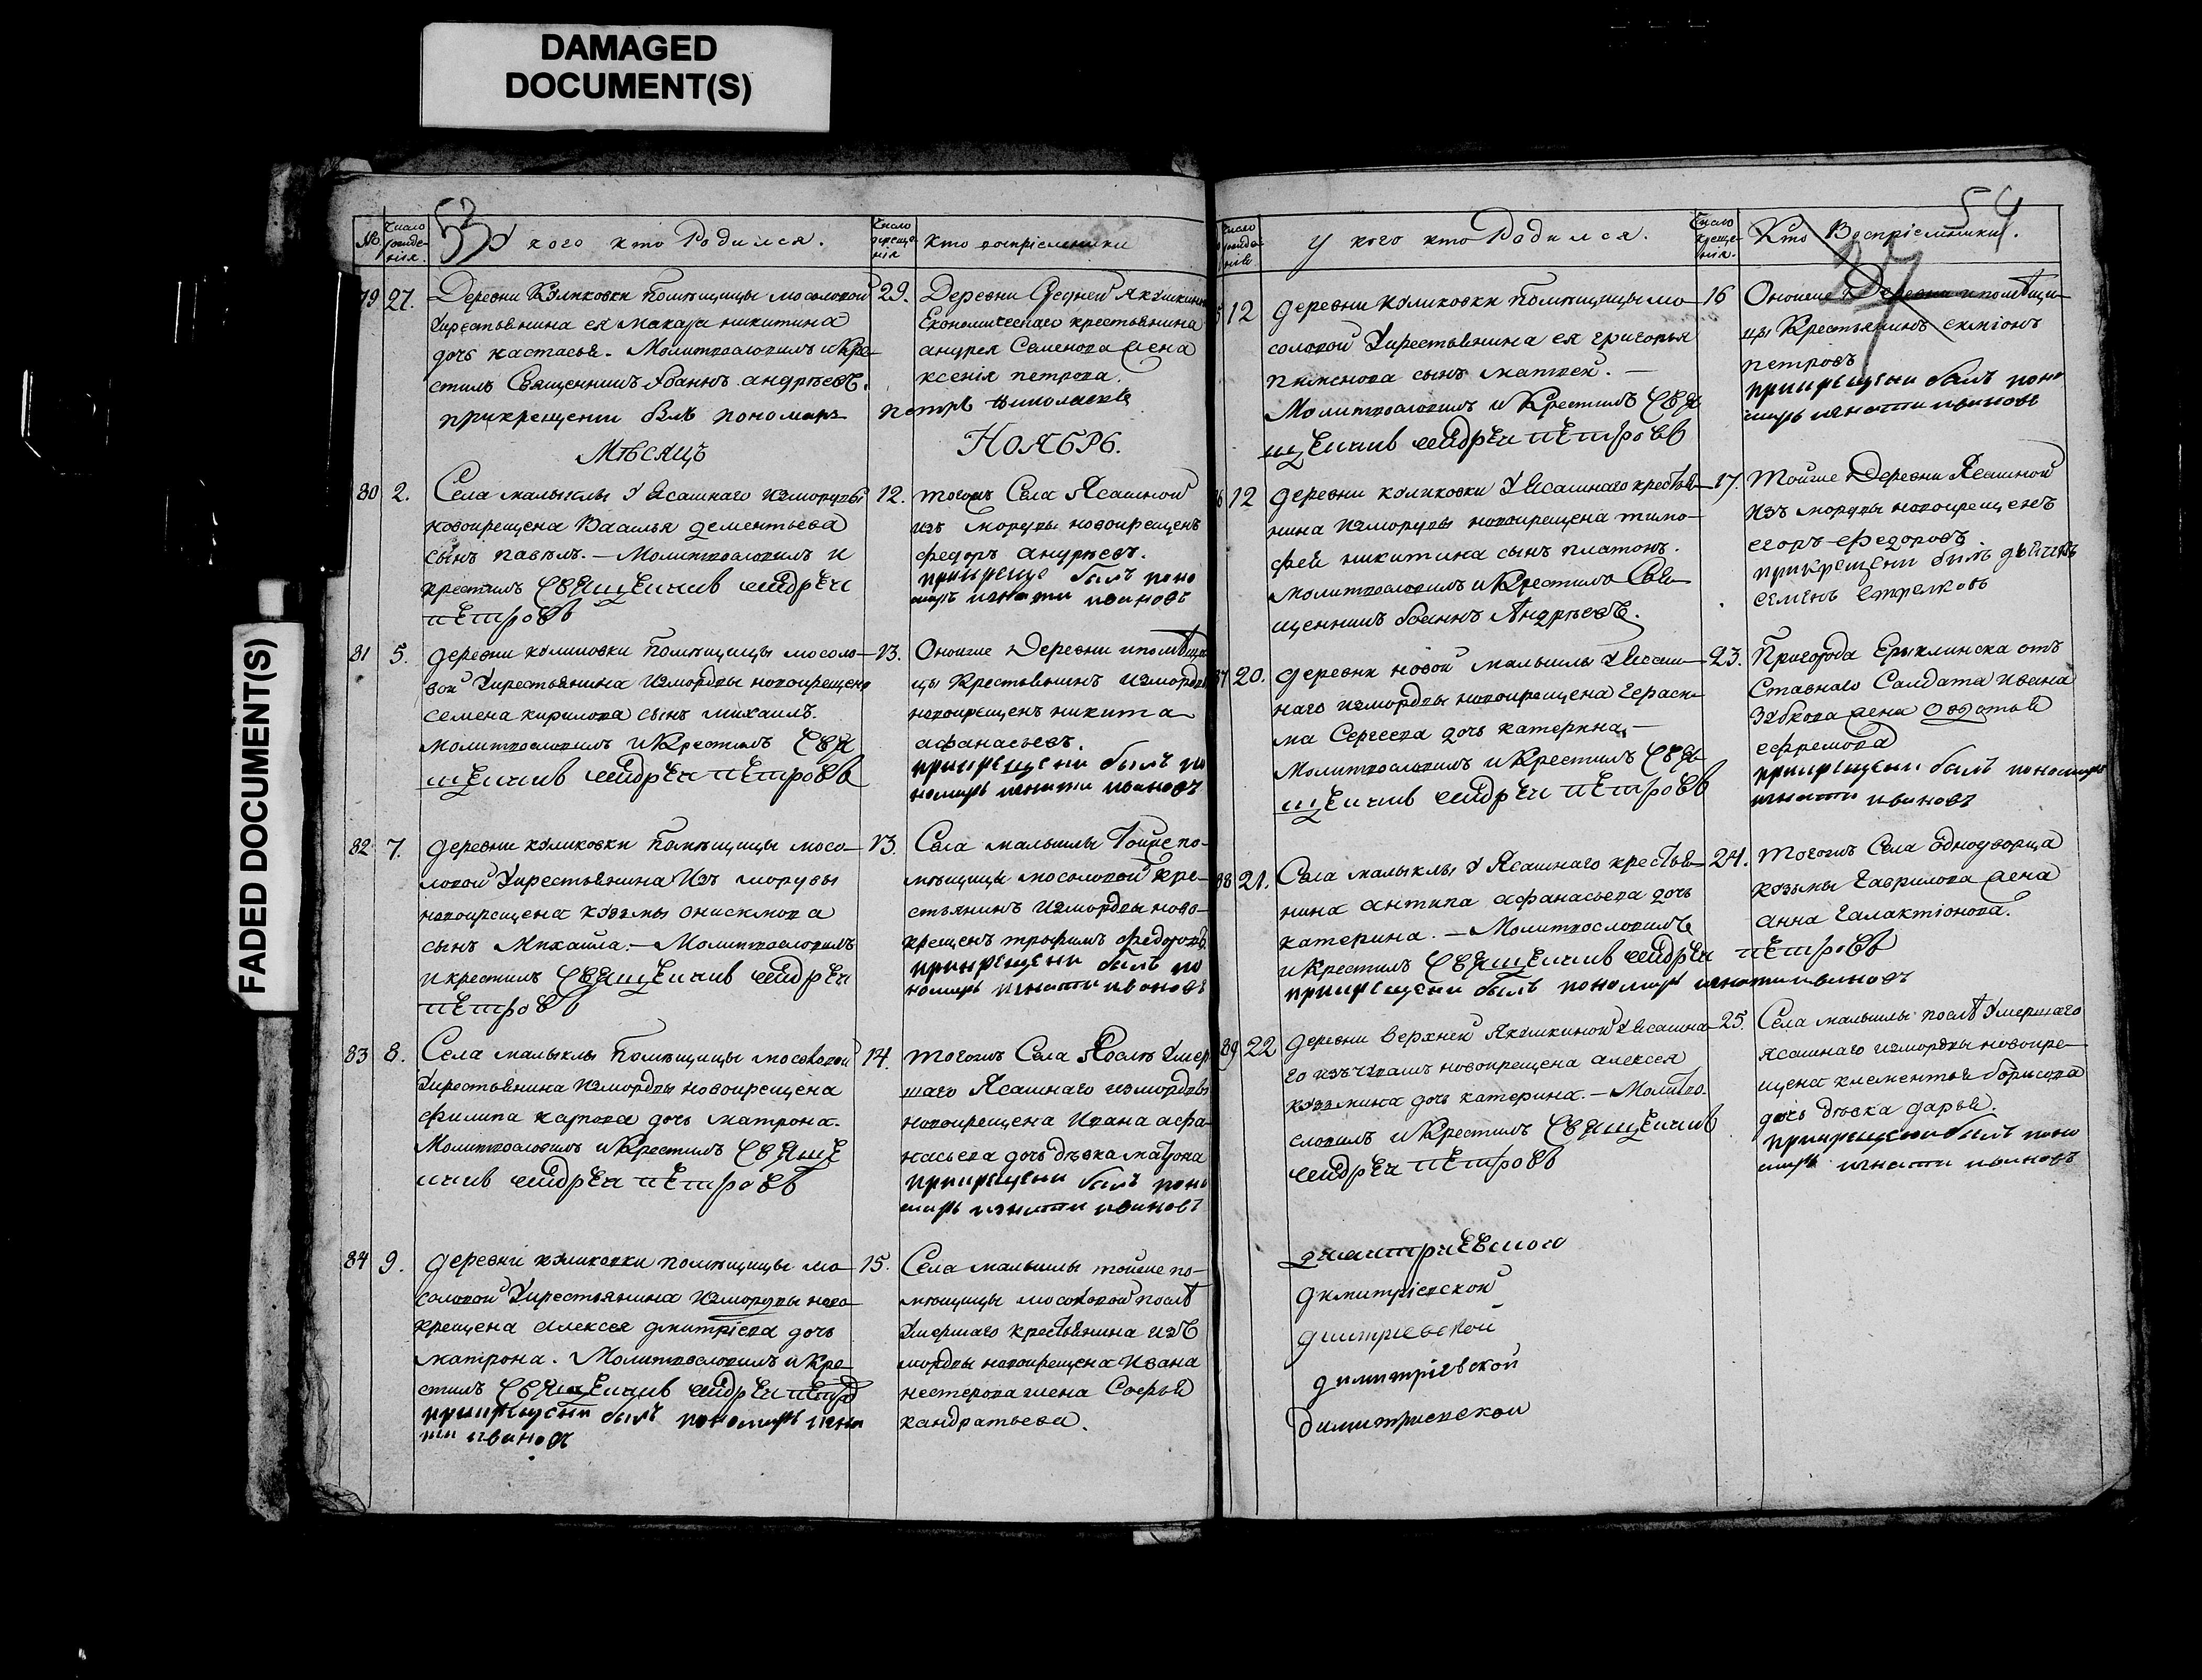 DAMAGED
DOCUMENT(S)
FADED DOCUMENT(S)
53
№
Число рожде-
нія.
У кого кто Родился.
Число креще-
нія
Кто воспріемники
79 27. Деревни Куликовки Помѣщицы мосоловой
Укрестьянина ея макара никитина
дочь настасья. Молитвословилъ и Кре-
стилъ Священникъ Іоаннъ андрѣевъ.
прикрещении былъ пономарь
29. Деревни Средней Якушкиной
Економическаго крестьянина
андрея Семенова жена
ксенія петрова.
петръ николаевъ
Мѣсяцъ НОЯБРЬ.
80 2. Села малыклы У Ясашнаго измордвы
новокрещена Василья дементьева
сынъ павелъ. — Молитвословилъ и
крестилъ Священникъ андрей
петровъ
12. тогожъ Села Ясашной
изъ мордвы новокрещенъ
федоръ андрѣевъ.
прикреще былъ поно
марь игнати ивановъ
81 5. деревни куликовки Помѣщицы мосоло-
вой Укрестьянина Измордвы новокрещена
семена кирилова сынъ михаилъ.
молитвословилъ и Крестилъ Свя
щенникъ андрей петровъ
13. Оноиже Деревни ипомѣщи
цы Крестьянинъ измордвы
новокрещенъ никита
афанасьевъ.
прикрещени былъ по
номарь игнати ивановъ
82 7. деревни куликовки Помѣщицы мосо-
ловой Укрестьянина Изъ мордвы
новокрещена кузмы онисимова
сынъ Михаила. — Молитвословилъ
и крестилъ Священникъ андрей
петровъ
13. Села малыклы Тойже по-
мѣщицы мосоловой Кре-
стьянинъ измордвы ново-
крещенъ трофимъ федоровъ
прикрещени былъ по
номарь игнати ивановъ
83 8. Села малыклы Помѣщицы мосоловой
Укрестьянина измордвы новокрещена
филипа карпова дочь матрона.
Молитвословилъ и Крестилъ Свяще
нникъ андрей петровъ
14. тогожъ Села Послѣ Умер
шаго Ясашнаго измордвы
новокрещена Ивана афа-
насьева дочь дѣвка матрона
прикрещени былъ поно
марь игнати ивановъ
84 9. деревни куликовки помѣщицы мо-
соловой Укрестьянина измордвы ново-
крещена алексея дмитріева дочь
матрона. Молитвословилъ и Кре-
стилъ Священникъ андрей петро
прикрещени былъ пономарь игна
ти ивановъ
15. Села малыклы тойже по-
мѣщицы мосоловой послѣ
Умершаго крестьянина изъ
мордвы новокрещена Ивана
нестерова жена Софья
кандратьева.
54
27
Число рожде-
нія
У кого кто Родился.
Число креще-
нія.
Кто Воспріемники.
12 деревни куликовки Помѣщицы мо-
соловой Укрестьянина ея григорья
пименова сынъ матвей. —
Молитвословилъ и Крестилъ Свя
щенникъ андрей петровъ
16 Оноиже Деревни ипомѣщи-
цы Крестьянинъ симіонъ
петровъ
прикрещени былъ поно
марь игнати ивановъ
12 деревни куликовки У Ясашнаго крестья-
нина измордвы новокрещена тимо-
фея никитина сынъ платонъ.
молитвословилъ и Крестилъ Свя-
щенникъ Іоаннъ Андрѣевъ.
17. Тойже Деревни Ясашной
изъ мордвы новокрещенъ
егоръ федоровъ
прикрещени былъ дьячекъ
семенъ стрелковъ
20. деревни новой малыклы У Ясаш-
наго измордвы новокрещена Гераси-
ма Сергеева дочь катерина. —
Молитвословилъ и Крестилъ Свя-
щенникъ андрей петровъ
23. Пригорода Ерыклинска отъ
Ставнаго Салдата ивана
Зубкова жена
ефремова
прикрещени былъ пономарь
игнати ивановъ
88 21. Села малыклы У Ясашнаго крестья-
нина антипа афанасьева дочь
катерина. — Молитвословилъ
и Крестилъ Священникъ андрей петровъ
прикрещени былъ пономарь игнати ивановъ
24. Тогожъ Села однодворца
козьмы Гаврилова жена
анна Галактіонова.
89 22 деревни верхней Якушкиной У Ясашна-
го изъ чувашъ новокрещена алексея
кузмина дочь катерина. — Молитво-
словилъ и Крестилъ Священникъ
андрей петровъ
25. Села малыклы послѣ Умершаго
ясашнаго измордвы новокре-
щена клементья борисова
дочь дѣвка дарья.
прикрещени былъ поно
марь игнати ивановъ
дмитриевской
димитріевской
дмитріевской
димитріевской
димитриевской